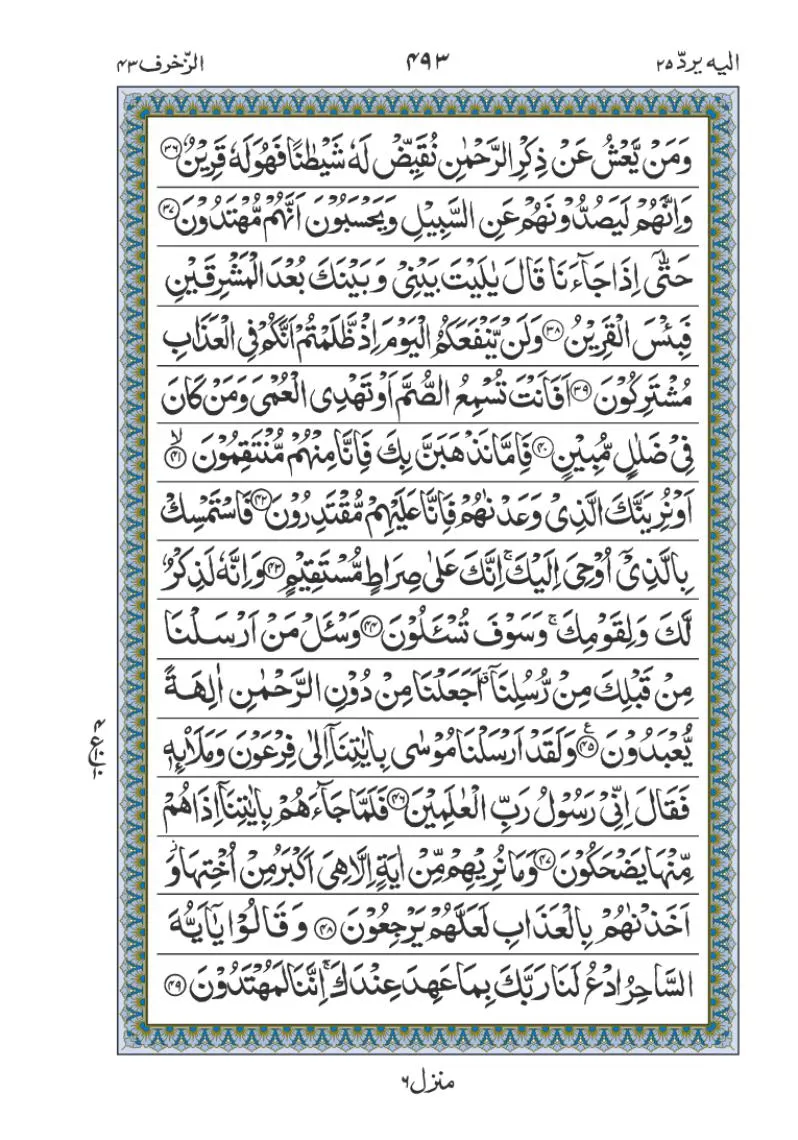 الیہ یردّ ۲۵
۴۹۳
الزّخرف ۴۳
وَمَنْ یَّعْشُ عَنْ ذِكْرِ الرَّحْمٰنِ نُقَیِّضْ لَهٗ شَیْطٰنًا فَهُوَ لَهٗ قَرِیْنٌ ۳۶
وَاِنَّهُمْ لَیَصُدُّوْنَهُمْ عَنِ السَّبِیْلِ وَیَحْسَبُوْنَ اَنَّهُمْ مُّهْتَدُوْنَ ۳۷
حَتّٰۤی اِذَا جَآءَنَا قَالَ یٰلَیْتَ بَیْنِیْ وَبَیْنَكَ بُعْدَ الْمَشْرِقَیْنِ
فَبِئْسَ الْقَرِیْنُ ۳۸ وَلَنْ یَّنْفَعَكُمُ الْیَوْمَ اِذْ ظَّلَمْتُمْ اَنَّكُمْ فِی الْعَذَابِ
مُشْتَرِكُوْنَ ۳۹ اَفَاَنْتَ تُسْمِعُ الصُّمَّ اَوْ تَهْدِی الْعُمْیَ وَمَنْ كَانَ
فِیْ ضَلٰلٍ مُّبِیْنٍ ۴۰ فَاِمَّا نَذْهَبَنَّ بِكَ فَاِنَّا مِنْهُمْ مُّنْتَقِمُوْنَ ۙ۴۱
اَوْ نُرِیَنَّكَ الَّذِیْ وَعَدْنٰهُمْ فَاِنَّا عَلَیْهِمْ مُّقْتَدِرُوْنَ ۴۲ فَاسْتَمْسِكْ
بِالَّذِیْۤ اُوْحِیَ اِلَیْكَ ۚ اِنَّكَ عَلٰی صِرَاطٍ مُّسْتَقِیْمٍ ۴۳ وَاِنَّهٗ لَذِكْرٌ
لَّكَ وَلِقَوْمِكَ ۚ وَسَوْفَ تُسْـَٔلُوْنَ ۴۴ وَسْـَٔلْ مَنْ اَرْسَلْنَا
مِنْ قَبْلِكَ مِنْ رُّسُلِنَاۤ ۖ اَجَعَلْنَا مِنْ دُوْنِ الرَّحْمٰنِ اٰلِهَةً
یُّعْبَدُوْنَ ۴۵ع وَلَقَدْ اَرْسَلْنَا مُوْسٰی بِاٰیٰتِنَاۤ اِلٰی فِرْعَوْنَ وَمَلَا۠ىِٕهٖ
فَقَالَ اِنِّیْ رَسُوْلُ رَبِّ الْعٰلَمِیْنَ ۴۶ فَلَمَّا جَآءَهُمْ بِاٰیٰتِنَاۤ اِذَا هُمْ
مِّنْهَا یَضْحَكُوْنَ ۴۷ وَمَا نُرِیْهِمْ مِّنْ اٰیَةٍ اِلَّا هِیَ اَكْبَرُ مِنْ اُخْتِهَا ؗ وَ
اَخَذْنٰهُمْ بِالْعَذَابِ لَعَلَّهُمْ یَرْجِعُوْنَ ۴۸ وَقَالُوْا یٰۤاَیُّهَ
السَّاحِرُ ادْعُ لَنَا رَبَّكَ بِمَا عَهِدَ عِنْدَكَ ۚ اِنَّنَا لَمُهْتَدُوْنَ ۴۹
منزل ۶